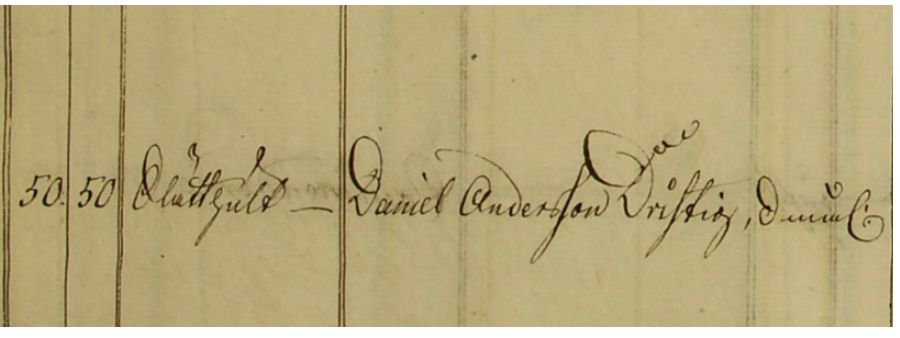 50. 50 Slätthult — Daniel Andersson Dristig,